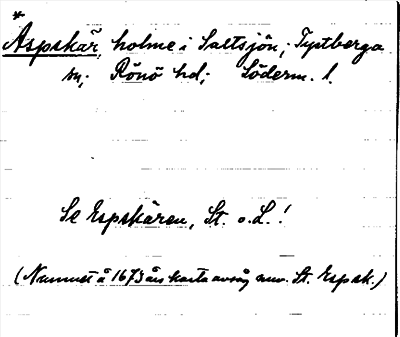 *
Äspskär, holme i Saltsjön; Tystberga
sn; Rönö hd; Söderm. l.
Se Espskären, St. o. L.!
(Namnet å 1673 års karta avsåg nuv. St. Espsk.)